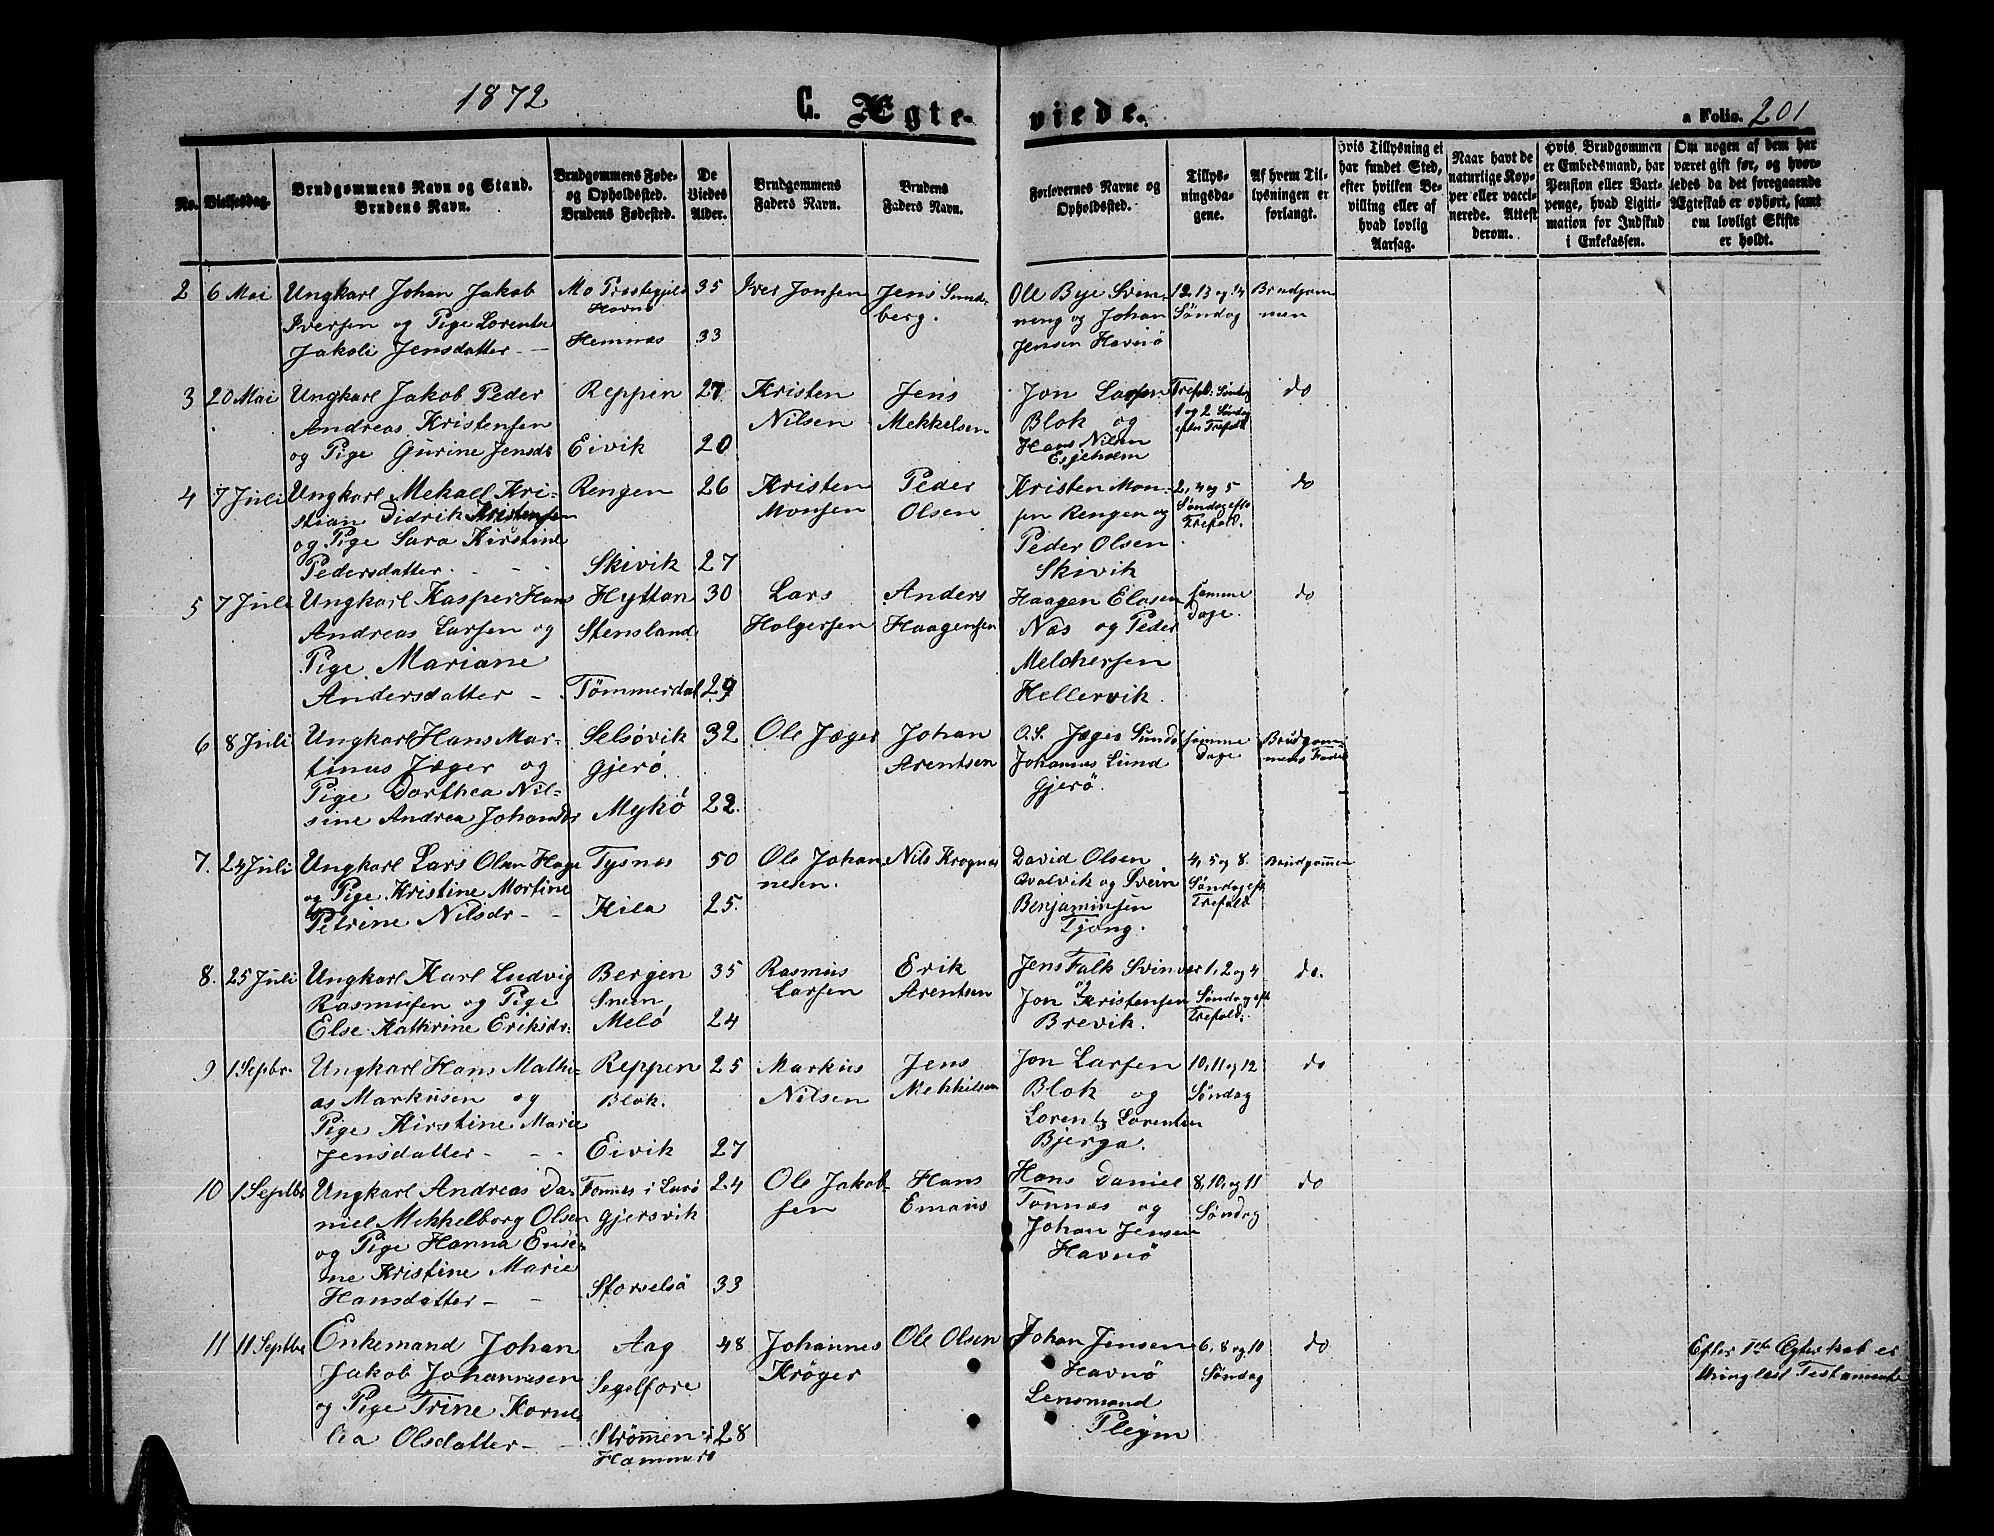 1872 C. Ægte-viede. a Folio. 201
No.
Vielsesdag.
Brudgommens Navn og Stand.
Brudens Navn.
Brudgommens Føde-
og Opholdssted.
Brudens Fødested.
De
Viedes
Alder.
Brudgommens
Faders Navn.
Brudens
Faders Navn.
Forlovernes Navne og
Opholdssted.
Tillys-
ningsda-
gene.
Af hvem Til-
lysningen er
forlangt.
Hvis Tillysning ei
har fundet Sted,
efter hvilken Be-
villing eller af
hvad lovlig
Aarsag.
Naar havt de
naturlige Kop-
per eller vacci-
nerede. Attest
derom.
Hvis Brudgommen
er Embedsmand, har
Pension eller Vart-
penge, hvad Ligiti-
mation for Indskud
i Enkekassen.
Om nogen af dem har
været gift før, og hvor-
ledes da det foregaaende
Ægteskab er ophørt, samt
om lovligt Skifte
er holdt.
2 6 Mai Ungkarl Johan Jakob Mo Præstegjeld 35 Iver Jonsen Jens Sund- Ole Bye Svin- 12, 13 og 14 Brudgom-
Iversen og Pige Lorentse Havnø berg. neng og Johan Søndag men
Jakoli Jensdatter - Hemnæs 33 Jensen Havnø
3 20 Mai Ungkarl Jakob Peder Reppen 27 Kristen Jens Jon Larsen Trefold. Søndag do
Andreas Kristensen Nilsen Mekkelsen. Blok og 1 og 2 Søndag
og Pige Gurine Jensdr Eivik 20 Hans Nilsen efter Trefold.
Esjeholm
4 7 Juli Ungkarl Mekael Kri- Rengen 26 Kristen Peder Kristen Mon- 2, 4 og 5 do
stian Didrik Kristensen Monsen Olsen sen Rengen og Søndag eft
og Pige Sara Kirstine Peder Olsen Trefold.
Pedersdatter. Skivik 27 Skivik
5 7 Juli Ungkarl Kasper Hans Hyttan 30 Lars Anders Haagen Elasen samme do
Andreas Larsen og Stensland Holgersen Haagensen Næs og Peder Dage.
Pige Mariane Melchersen
Andersdatter - Tømmerdal 29 Hellervik.
6 8 Juli Ungkarl Hans Mar- Selsøvik 32 Ole Jæger Johan O.S. Jæger Sundø samme Brudgom-
tinus Jæger og Gjerø. Arentsen Johannes Lund Dage mens Fader
Pige Dorthea Nil- Gjerø.
sine Andrea Johansdr Mykø 22.
7. 24 Juli Ungkarl Lars Olsen Hage Tysnæs 50 Ole Johan- Nils Krognæs David Olsen 4, 5 og 8. Brudgommen
og Pige Kristine Mortine nesen. Qvalvik og Svein Søndag eft
Petrine Nilsdr - - Kila 25. Benjaminsen Trefold.
Tjong.
8. 25 Juli Ungkarl Karl Ludvig Bergen 35 Rasmus Erik Jens Falk Svinvær 1, 2 og 4 do.
Rasmusen og Pige Sneen Larsen Arentsen og Jon Kristensen Søndag eft
Else Kathrine Eriksdr. Melø 24 Brevik. Trefold.
9 1 Sepbr. Ungkarl Hans Mathi- Reppen 25 Markus Jens Jon Larsen 10, 11 og 12 do
as Markusen og Blok. Nilsen Mekkelsen Blok og Søndag
Pige Kirstine Marie Lorentz Lorentsen
Jensdatter - - - Eivik 27 Bjerga.
10 1 Septbr Ungkarl Andreas Da- Tonnes i Lurø 24 Ole Jakob- Hans Hans Daniel 8, 10, og 11 do
niel Mikkelborg Olsen Gjersvik sen Emaus Tonnæs og Søndag
og Pige Hanna Ensi- Johan Jensen
ne Kristine Marie Havnø
Hansdatter - - Storselsø 33
11 11 Septbr Enkemand Johan Aag 48 Johannes Ole Olsen Johan Jensen 6, 8 og 10 do Efter 1ste Ægteskab er
Jakob Johannesen Segelfore Krøger Havnø Søndag thinglæst Testamente
og Pige Trine Korne- Lensmand
lia Olsdatter - - Strømmen i 28 Pleym
Hammerø